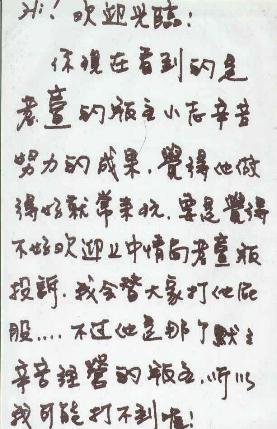 hi! 歡迎光臨!
你現在看到的是
老臺的版主小志辛苦
努力的成果,覺得他做
得好就常來玩,要是覺得
不好歡迎上中情向老臺版
投訴,我會替大家打他屁
股....不过他是那个默
辛苦經營的版主,所以
我可能打不到喔!